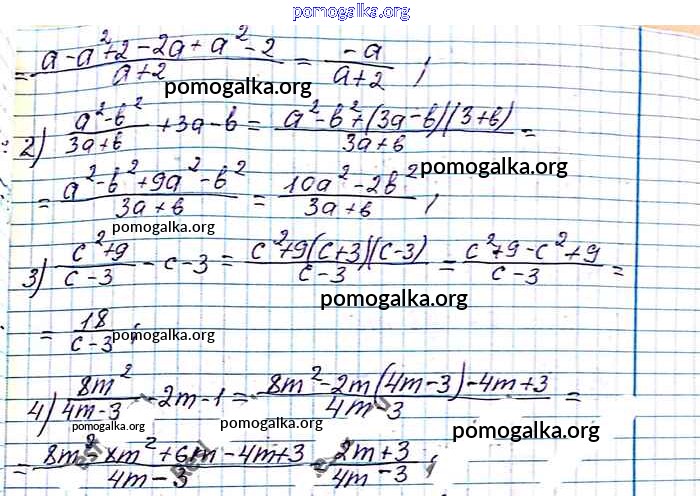 pomogalka.org
= (a-a²+2-2a+a²-2)/(a+2) = (-a)/(a+2) ;
pomogalka.org
2) (a²-b²)/(3a+b) +3a-b = (a²-b²+(3a-b)(3+b))/(3a+b) =
pomogalka.org
= (a²-b²+9a²-b²)/(3a+b) = (10a²-2b²)/(3a+b) ;
pomogalka.org
3) (c²+9)/(c-3) -c-3 = (c²+9(c+3)(c-3))/(c-3) = (c²+9-c²+9)/(c-3) =
pomogalka.org
= 18/(c-3) ;
pomogalka.org
4) (8m²)/(4m-3) -2m-1 = (8m²-2m(4m-3)-4m+3)/(4m-3) =
pomogalka.org
pomogalka.org
pomogalka.org
= (8m²-8m²+6m-4m+3)/(4m-3) = (2m+3)/(4m-3) ;